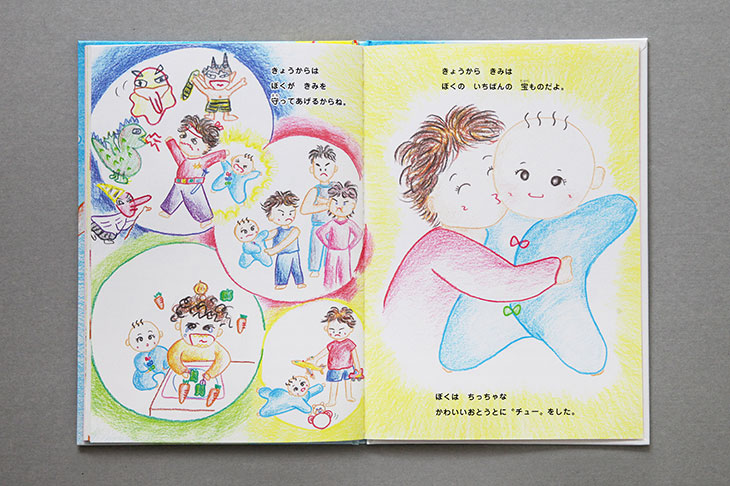 きょうからは
ぼくが きみを
守ってあげるからね。
きょうから きみは
ぼくの いちばんの 宝ものだよ。
ぼくは ちっちゃな
かわいいおとうとに〝チュー〟をした。